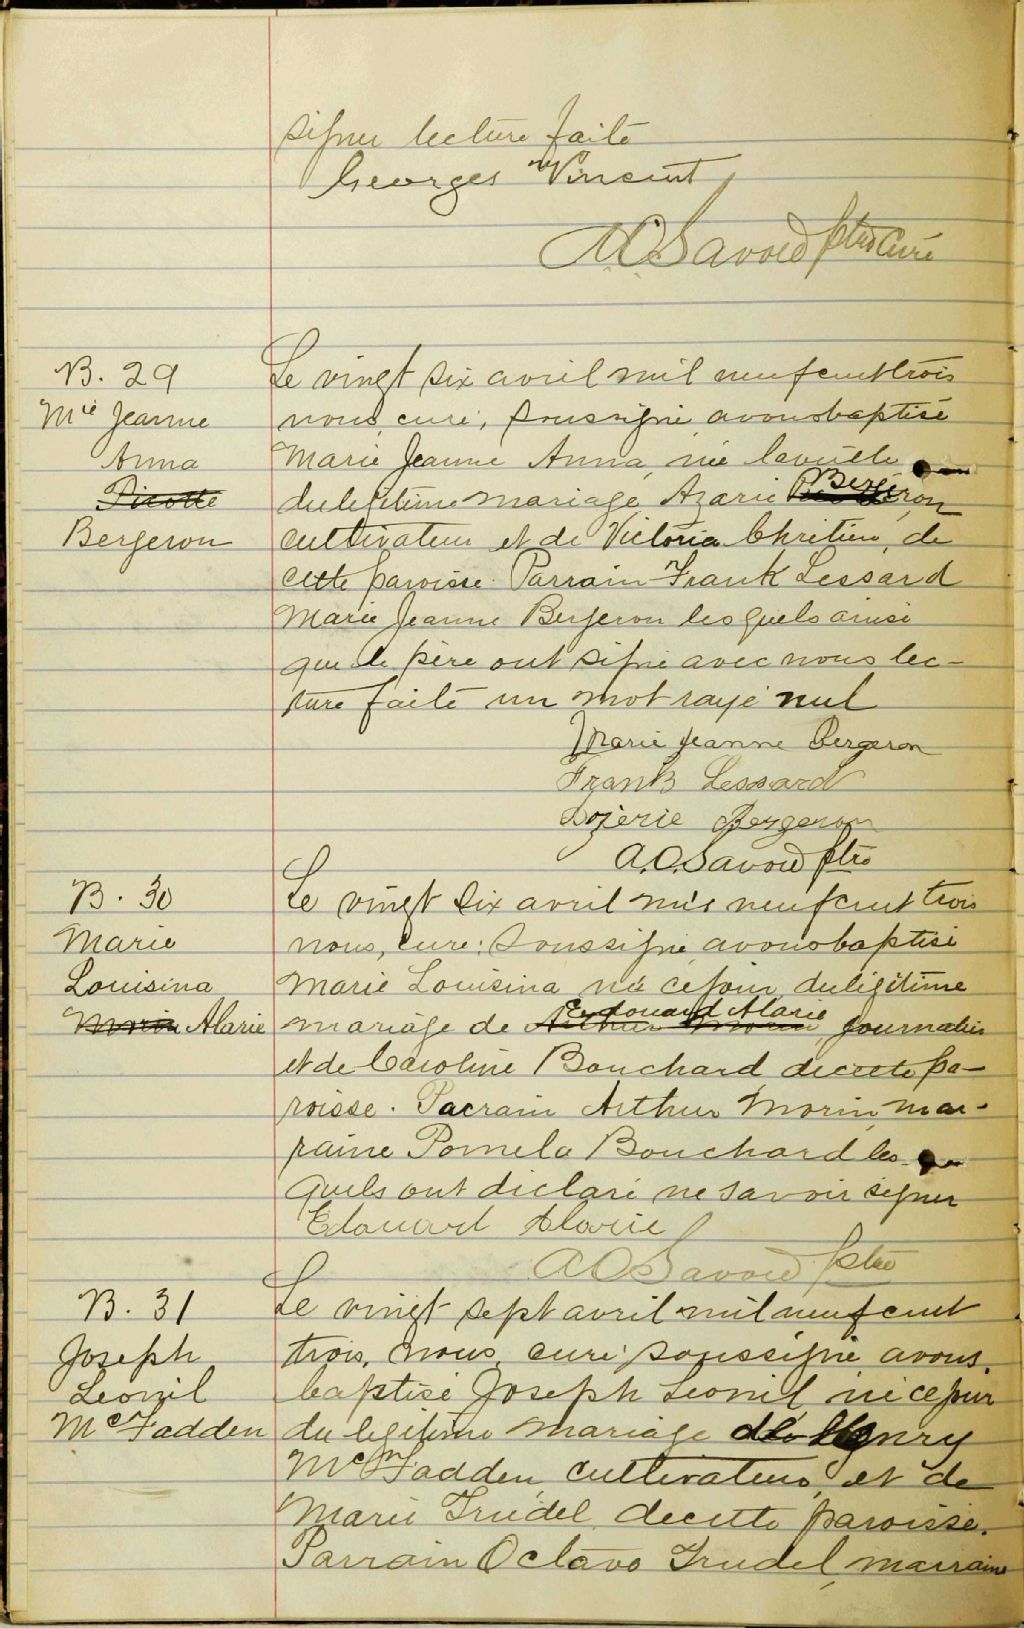 signer lecture faite
Georges Vincent
A O Savoie ptre Curé
B. 29
Mie Jeanne
Anna
Picotte
Bergeron
Le vingt six avril mil neuf cent trois
nous, curé, soussigné avons baptisé
Marie Jeanne Anna, née la veille
du legitime mariage, Azarie Bergeron
cultivateur et de Victoria Chretien, de
cette paroisse. Parrain Frank Lessard
Marie Jeanne Bergeron lesquels ainsi
que le père ont signé avec nous lec-
ture faite un mot rayé nul
Marie Jeanne Bergeron
Frank Lessard
Bergeron
A.O. Savoie ptre
B. 30
Marie
Louisina
Morin Alarie
Le vingt six avril mil neuf cent trois
nous, curé soussigné avons baptisé
Marie Louisina née ce jour du légitime
mariage de Arthur Morin Edouard Alarie, journalier
et de Caroline Bouchard de cette pa-
roisse. Parrain Arthur Morin, mar-
raine Pomela Bouchard les-
quels ont déclaré ne savoir signer
Edouard Alarie
A O Savoie ptre
B. 31
Joseph
Leonil
McFadden
Le vingt sept avril mil neuf cent
trois, nous, curé soussigné avons
baptisé Joseph Leonil, né ce jour
du legitime mariage de Henry
McFadden, cultivateur, et de
Marie Trudel de cette paroisse.
Parrain Octave Trudel, marraine